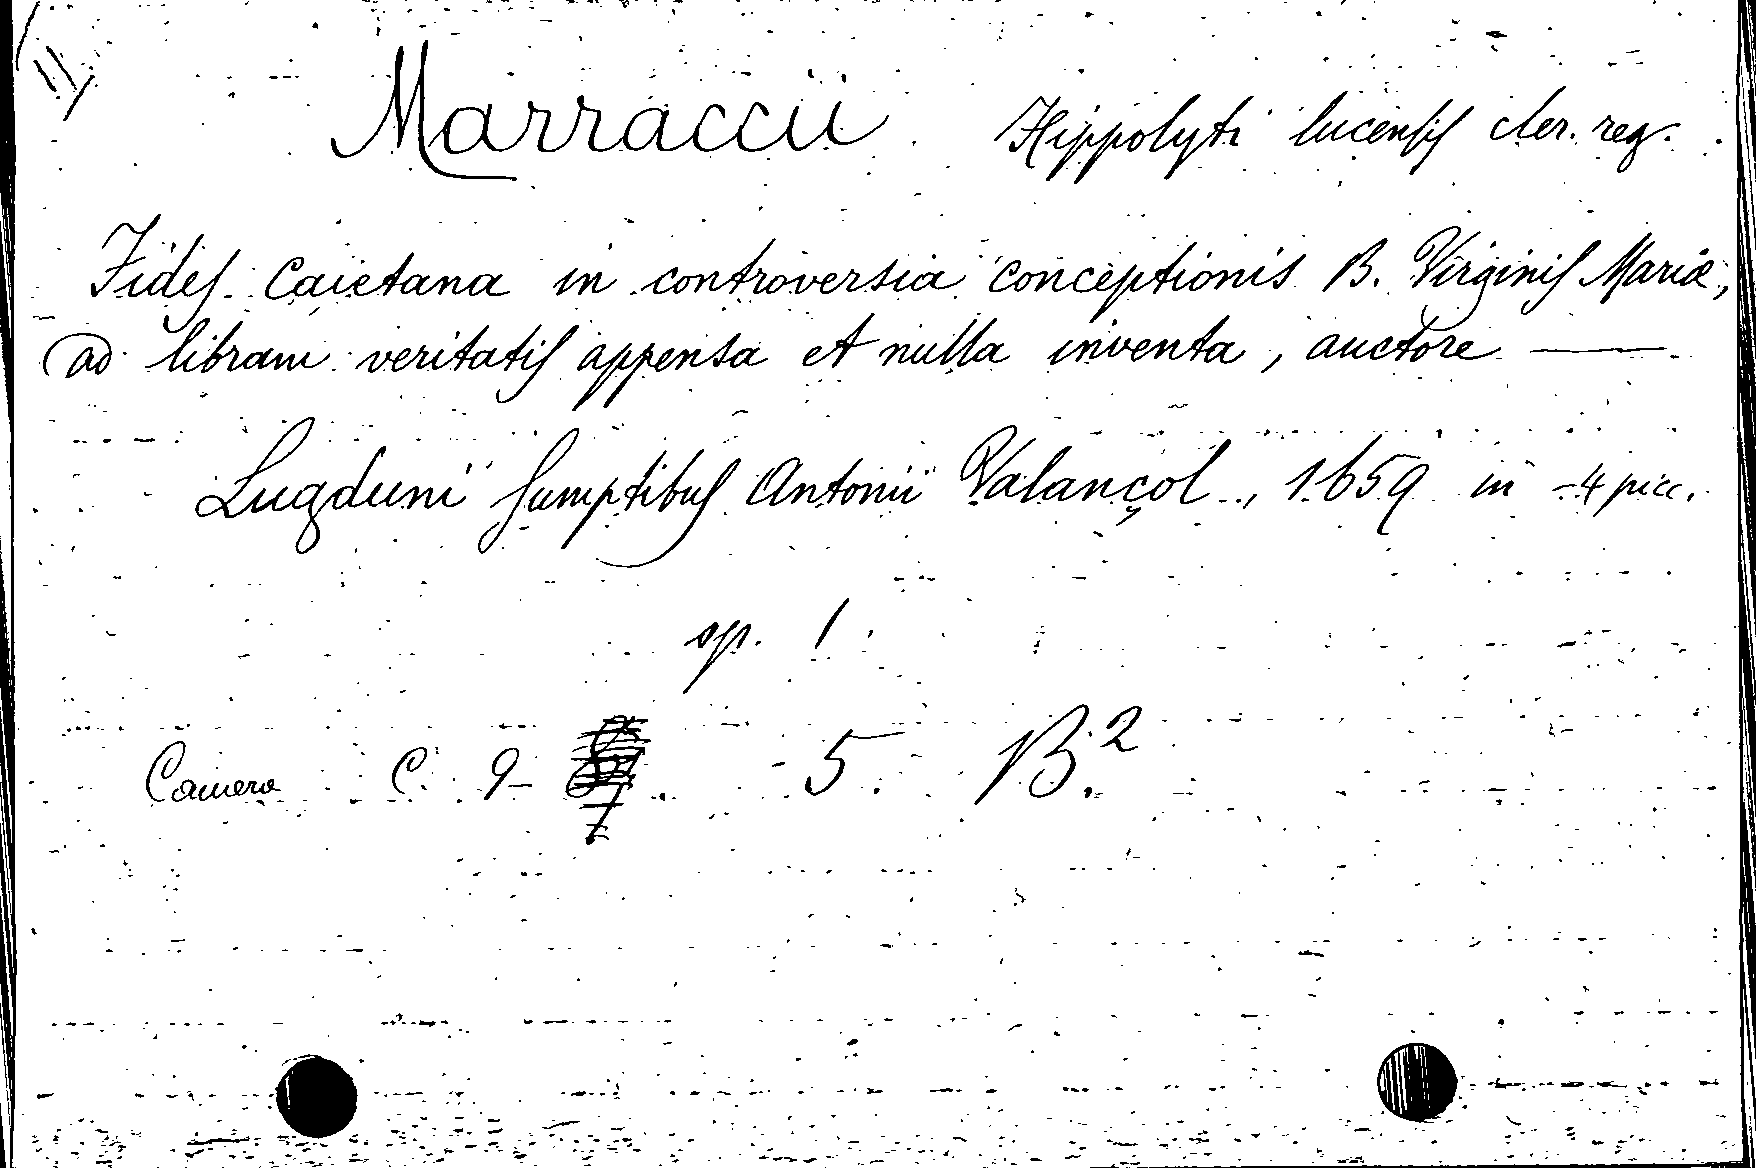 Marraccii Hippolyti lucensis cler. reg.
Fides Caietana in controversia conceptionis B. Virginis Mariæ,
ad libram veritatis appensa et nulla inventa, auctore ———
Lugduni sumptibus Antonii Valançol, 1659 in -4 picc.
op. 1
Camera C. 9- 5. B.²